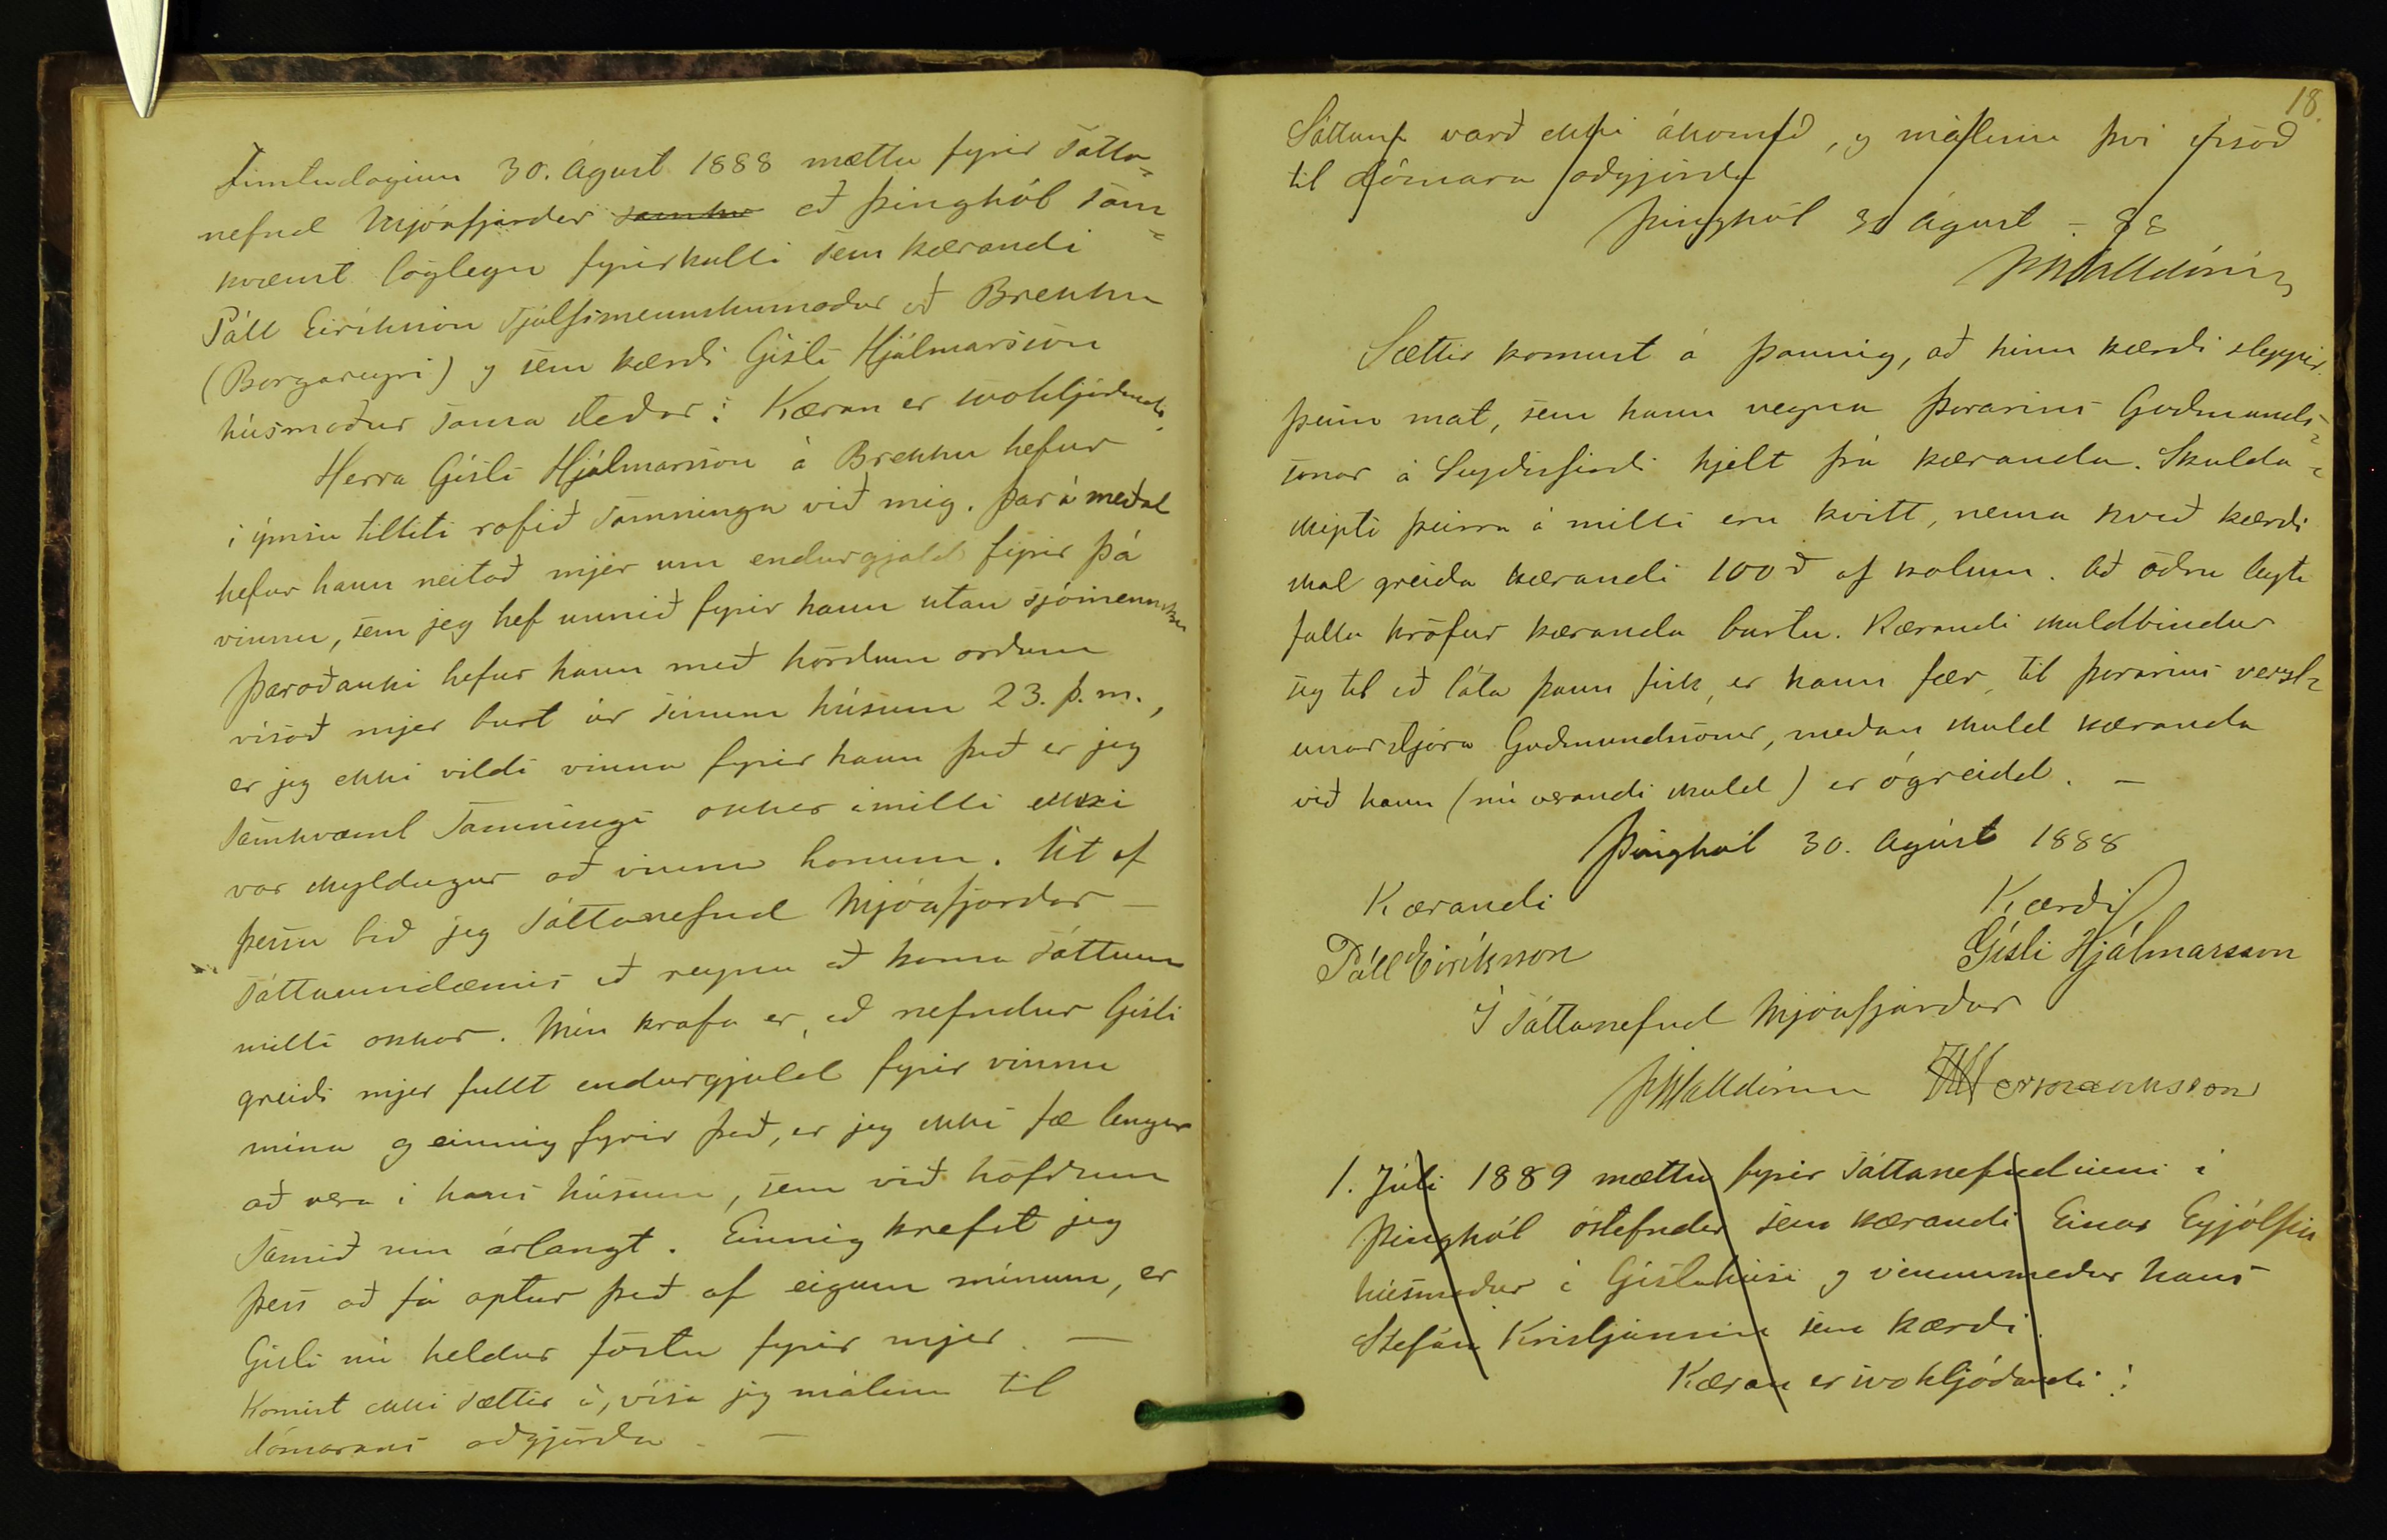 Fimtudaginn 30. Ágúst 1888 mættu fyrir sátta-
nefnd Mjóafjarðar samkv að Þinghól sam-
kvæmt löglegu fyrirkalli sem kærandi
Páll Eiríksson sjálfsmennskumaður að Brekku
(Borgareyri) og sem kærði Gísli Hjálmarsson
húsmaður sama staðar: Kæran er svohljóðandi:
Herra Gísli Hjálmarsson á Brekku hefur
í ýmsu tilliti rofið samninga við mig. Þar á meðal
hefur hann neitað mjer um endurgjald fyrir þá
vinnu, sem jeg hef unnið fyrir hann utan sjómennsku
Þaraðauki hefur hann með hörðum orðum
vísað mjer burt úr sínum húsum 23. þ.m.,
er jeg ekki vildi vinna fyrir hann það er jeg
samkvæmt samningi okkar ímilli ekki
var skyldugur að vinna honum. Út af
þessu bið jeg sáttanefnd Mjóafjarðar —
sáttaumdæmis að reyna að koma sáttum
milli okkar. Mín krafa er, að nefndur Gísli
greiði mjer fullt endurgjald fyrir vinnu
mína og einnig fyrir það, er jeg ekki fæ lengur
að vera í hans húsum, sem við höfðum
samið um árlangt. Einnig krefst jeg
þess að fá aptur það af eigum mínum, er
Gísli nú heldur föstu fyrir mjer. —
Komist ekki sættir á, vísa jeg málinu til
dómarans aðgjörða. —
18.
Sáttum varð ekki ákomið, og málinu því vísað
til dómara aðgjörða
Þinghól 30 Ágúst - 88
Sættir komust á þannig, að hinn kærði sleppir
þeim mat, sem hann vegna Þorarins Guðmunds-
sonar á Seyðisfirði hjelt frá kæranda. Skulda-
skipti þeirra á milli eru kvitt, nema hvað kærði
skal greiða kærandi 100 ℔ af kolum. Að öðru leyti
falla kröfur kæranda burtu. Kærandi skuldbindur
sig til að láta þann fisk, er hann fær, til Þorarins verzl-
unarstjóra Guðmundssonar, meðan skuld kæranda
við hann (nú verandi skuld) er ógreidd. —
Þinghól 30. Ágúst 1888
Kærandi Kærði
Páll Eiríksson Gísli Hjálmarsson
Í sáttanefnd Mjóafjarðar
Hermannsson
1. Júli 1889 mættu fyrir sáttanefndinni í
Þinghól óstefndir sem kærandi Einar Eyjólfsson
húsmaður í Gísluhúsi og vinnumaður hans
Stefán Kristjánsson sem kærði.
Kæran er svohljóðandi: